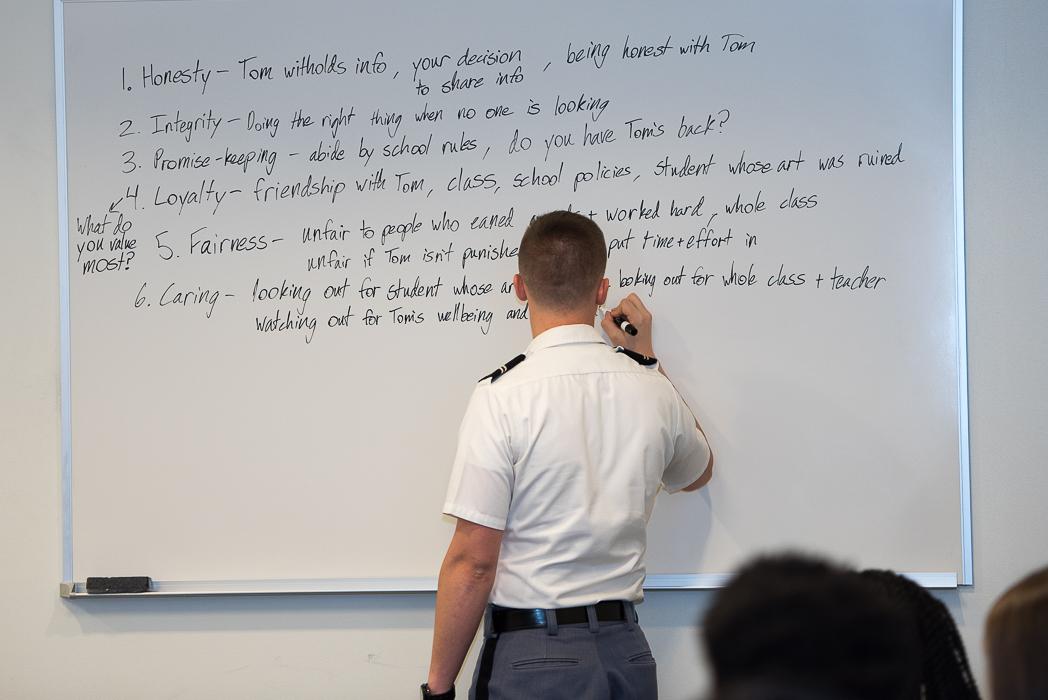 1. Honesty - Tom witholds info, your decision to share info, being honest with Tom
2. Integrity - Doing the right thing when no one is looking
3. Promise-keeping - abide by school rules, do you have Tom's back?
4. Loyalty - friendship with Tom, class, school policies, student whose art was ruined
What do
you value
most?
5. Fairness - unfair to people who eaned + worked hard, whole class
unfair if Tom isn't punishe put time + effort in
6. Caring - looking out for student whose ar looking out for whole class + teacher
Watching out for Tom's wellbeing and